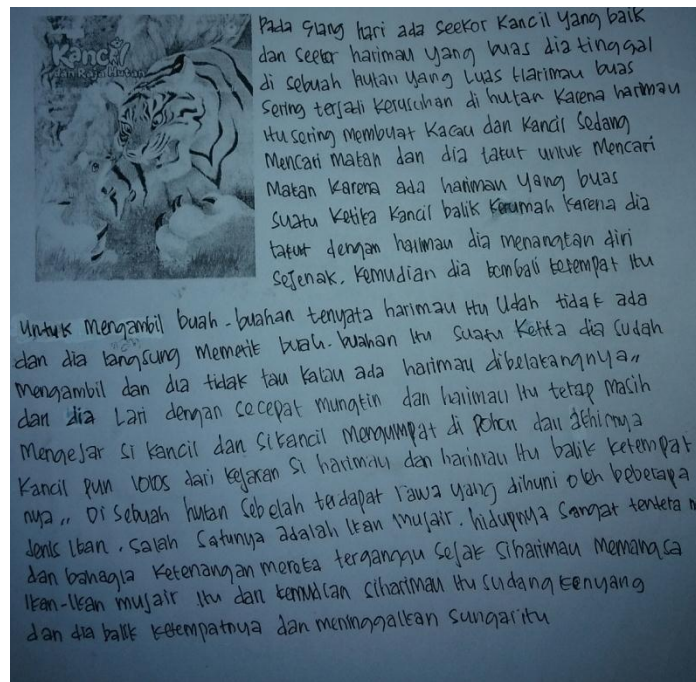 Kancil
dan Raja Hutan
Pada siang hari ada seekor kancil yang baik
dan seekor harimau yang buas dia tinggal
di sebuah hutan yang luas Harimau buas
sering terjadi kerusuhan di hutan karena harimau
itu sering membuat kacau dan kancil sedang
Mencari makan dan dia takut untuk mencari
Makan karena ada harimau yang buas
suatu ketika kancil balik kerumah karena dia
takut dengan harimau dia menangkan diri
sejenak. kemudian dia kembali ketempat itu
untuk mengambil buah-buahan tenyata harimau itu udah tidak ada
dan dia langsung memetik buah-buahan itu suatu ketika dia sudah
mengambil dan dia tidak tau kalau ada harimau dibelakangnya,,
dan dia Lari dengan secepat mungkin dan harimau itu tetap masih
Mengejar si kancil dan sikancil mengumpat di pohon dan akhirnya
Kancil pun lolos dari kejaran si harimau dan harimau itu balik ketempat
nya,, Di sebuah hutan sebelah terdapat rawa yang dihuni oleh beberapa
Jenis Ikan. salah satunya adalah Ikan mujair. hidupnya sangat tentera m
dan bahagia ketenangan mereka terganggu sejak siharimau memangsa
Ikan-Ikan mujair itu dan kemudian siharimau itu sudang kenyang
dan dia balik ketempatnya dan meninggalkan sungaritu